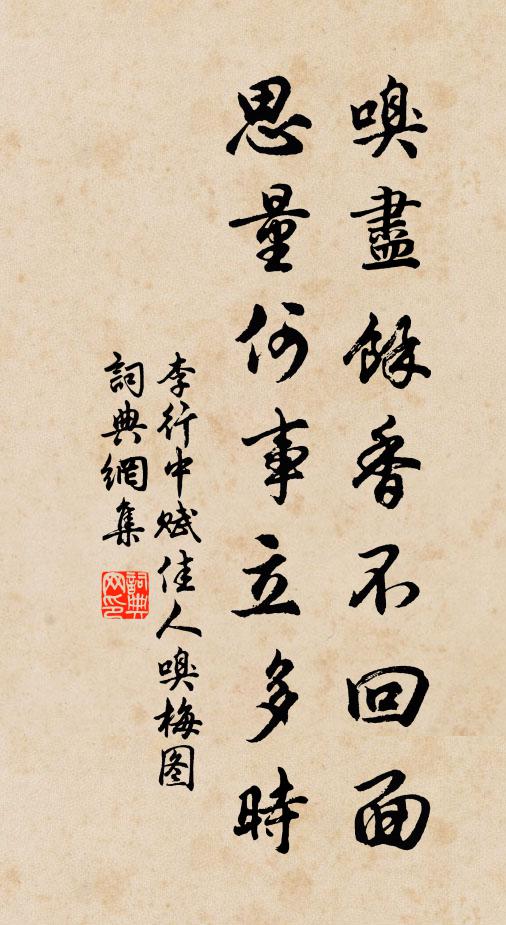 嗅盡餘香不回面
思量何事立多時
李行中賦佳人嗅梅图
詞典網集
詞典网印